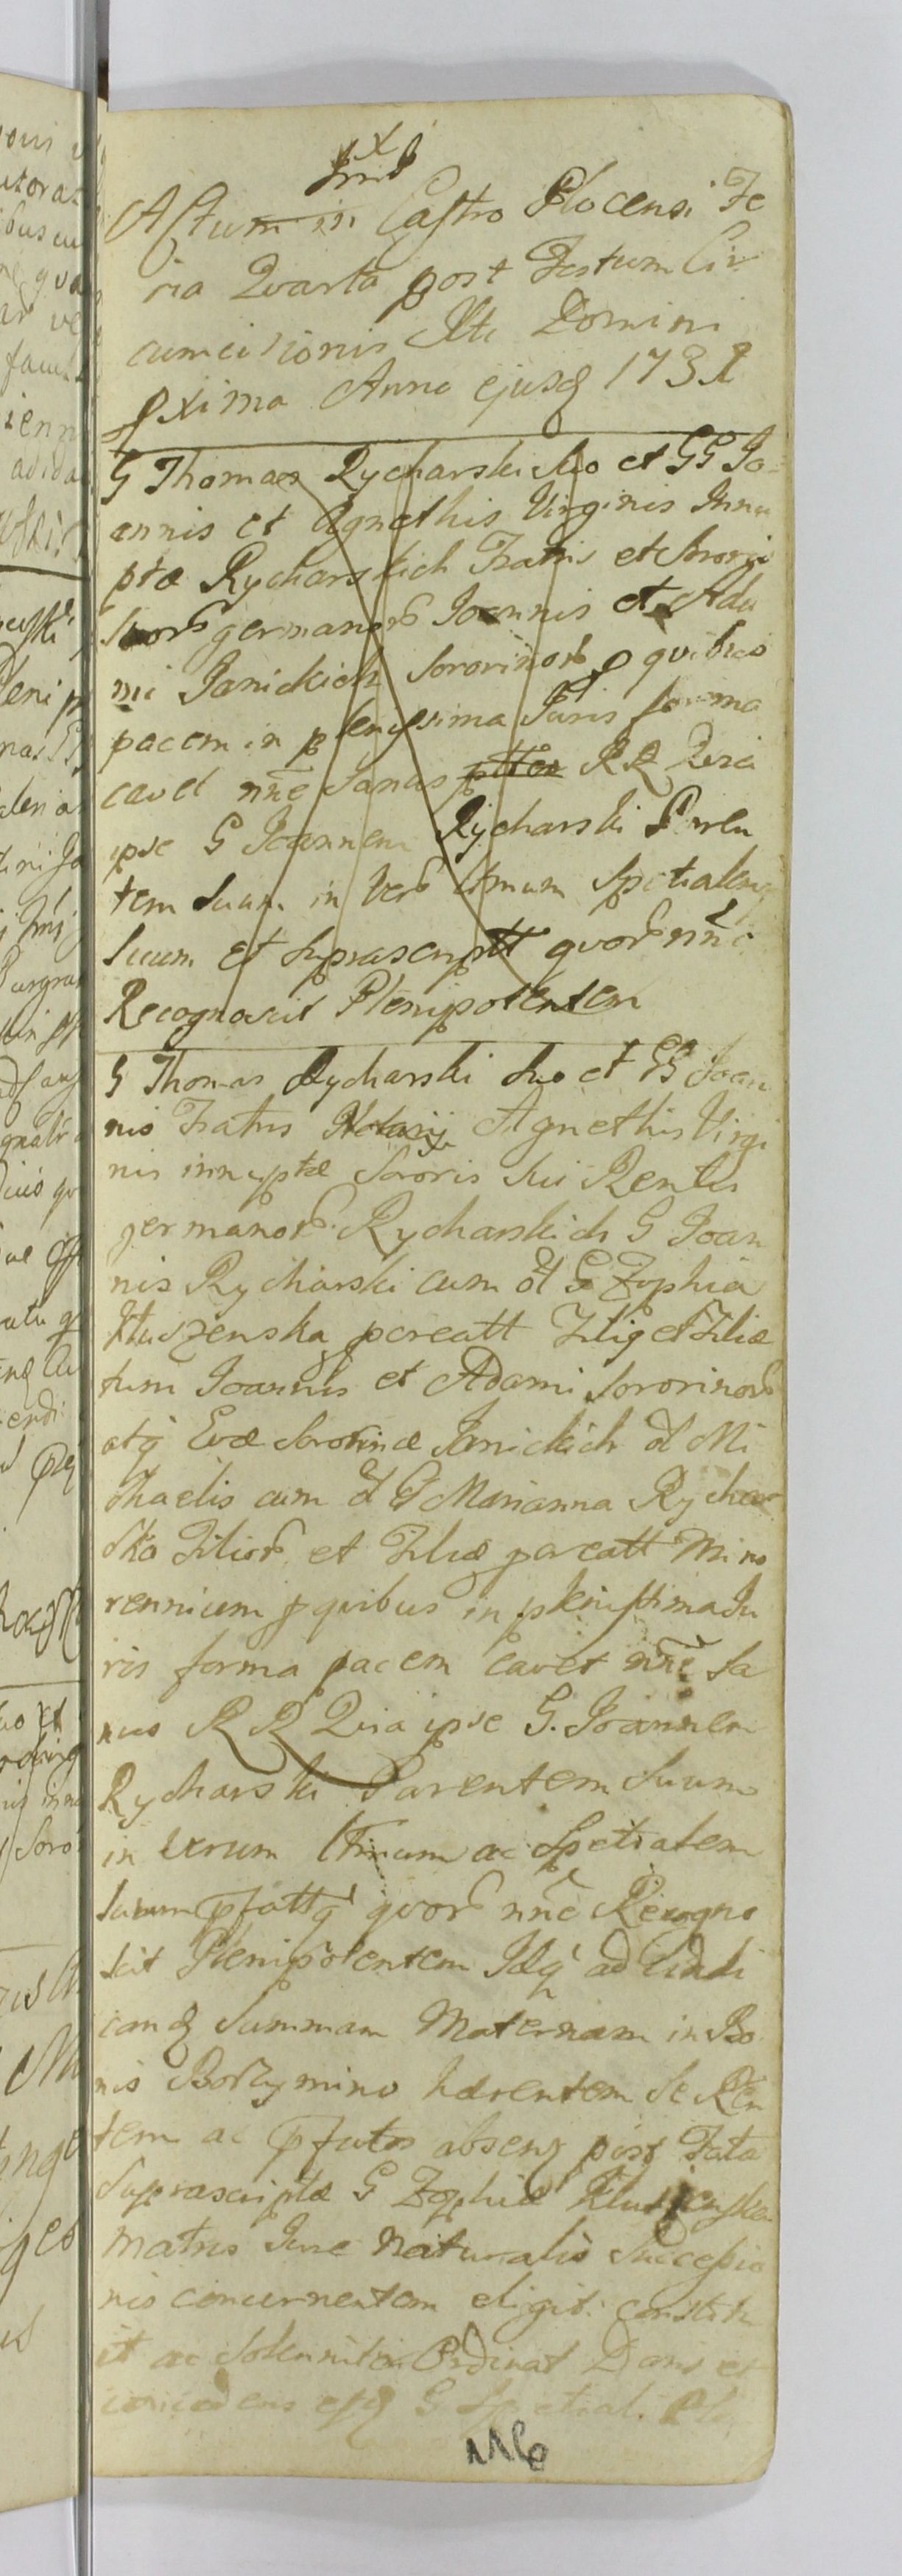 Actum in Castro Plocensi Fe
ria Quarta post Festum Cir
cumcisionis Xti Domini
pxima Anno ejusq 1731
G Thomas Rycharski Suo et GG Jo-
annis et Agnethis Virginis Innu
ptæ Rycharskich Fratris et Sororis
Suor germanor Joannis et Ada
mi Janickich Sororinor p quibus
pacem in plenissima Juris forma
cavet nne Sanus RR Quia
ipse G Joannem Rycharski Paren
tem Suum in Ver Ltmum Spetialem
Suum et Suprascriptt quor nne
Recognoscit Plenipotentem
G Thomas Rycharski Suo et GG Joan
nis Fratris Notarij Agnethis Virgi
nis innuptæ Sororis Sui Rentis
germanor Rycharskich G Joan
nis Rycharski cum ol G Zophia
pcreatt Filij et Filiæ
tum Joannis et Adami Sororinor
atq Evæ Sororinæ Janickich ol Mi
chaelis cum ol G Marianna Rychar
ska Filior et Filiæ pcreatt Mino
rennium p quibus in plenissima Ju
ris forma pacem cavet nne Sa
nus RR Quia ipse G. Joannem
Rycharski Parentem Suum
in Verum Ltmum ac Spetialem
Suum pfattq quor nne Recogno
scit Plenipotentem Idq ad vindi
canq Summam Maternam in Bo
nis Borzymino hærentem Se Ren
tem ac pfatos absens post Fata
Suprascriptæ G Zophiæ
Matris Jure Naturalis Successio
nis concernentem eligit constitu
it ac Solenniter Ordinat Dans et
concedens G Spetial. Ple